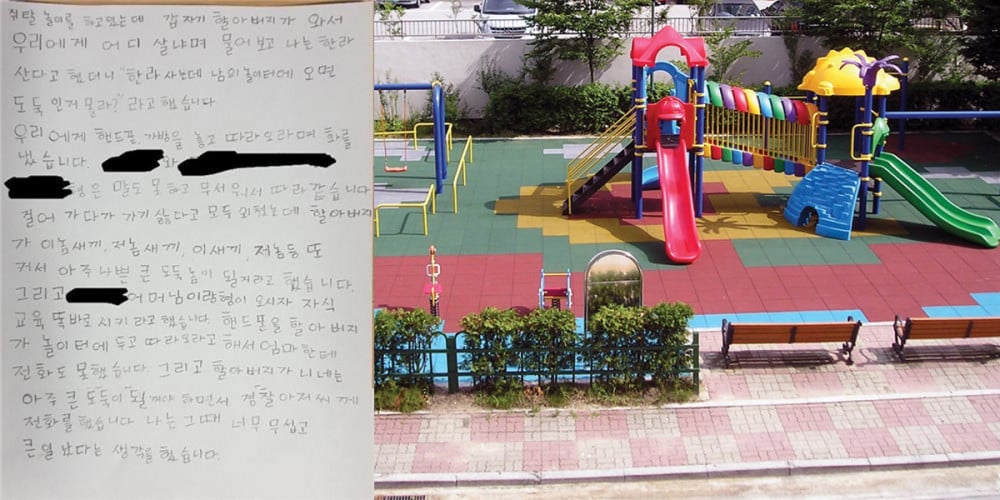 쥐탈 놀이를 하고있는데 갑자기 할아버지가 와서
우리에게 어디 살냐며 물어보고 나는 한라
산다고 했더니 "한라사는데 남의 놀이터에 오면
도둑인거 몰라?" 라고 했습니다
우리에게 핸드폰, 가방을 놓고 따라오라며 화를
냈습니다. 와
형은 말도 못하고 무서워서 따라갔습니다
걸어 가다가 가기싫다고 모두 외쳤는데 할아버지
가 이놈새끼, 저놈새끼, 이새끼, 저놈등 또
커서 아주나쁜 큰 도둑놈이 될거라고 했습니다.
그리고 어머님이랑형이 오시자 자식
교육 똑바로시키라고했습니다. 핸드폰을 할아버지
가 놀이터에 두고 따라오라고 해서 엄마한테
전화도 못했습니다. 그리고 할아버지가 니네는
아주 큰 도둑이 될꺼야 하면서 경찰아저씨께
전화를 했습니다. 나는 그때 너무 무섭고
큰일 났다는 생각을 했습니다.